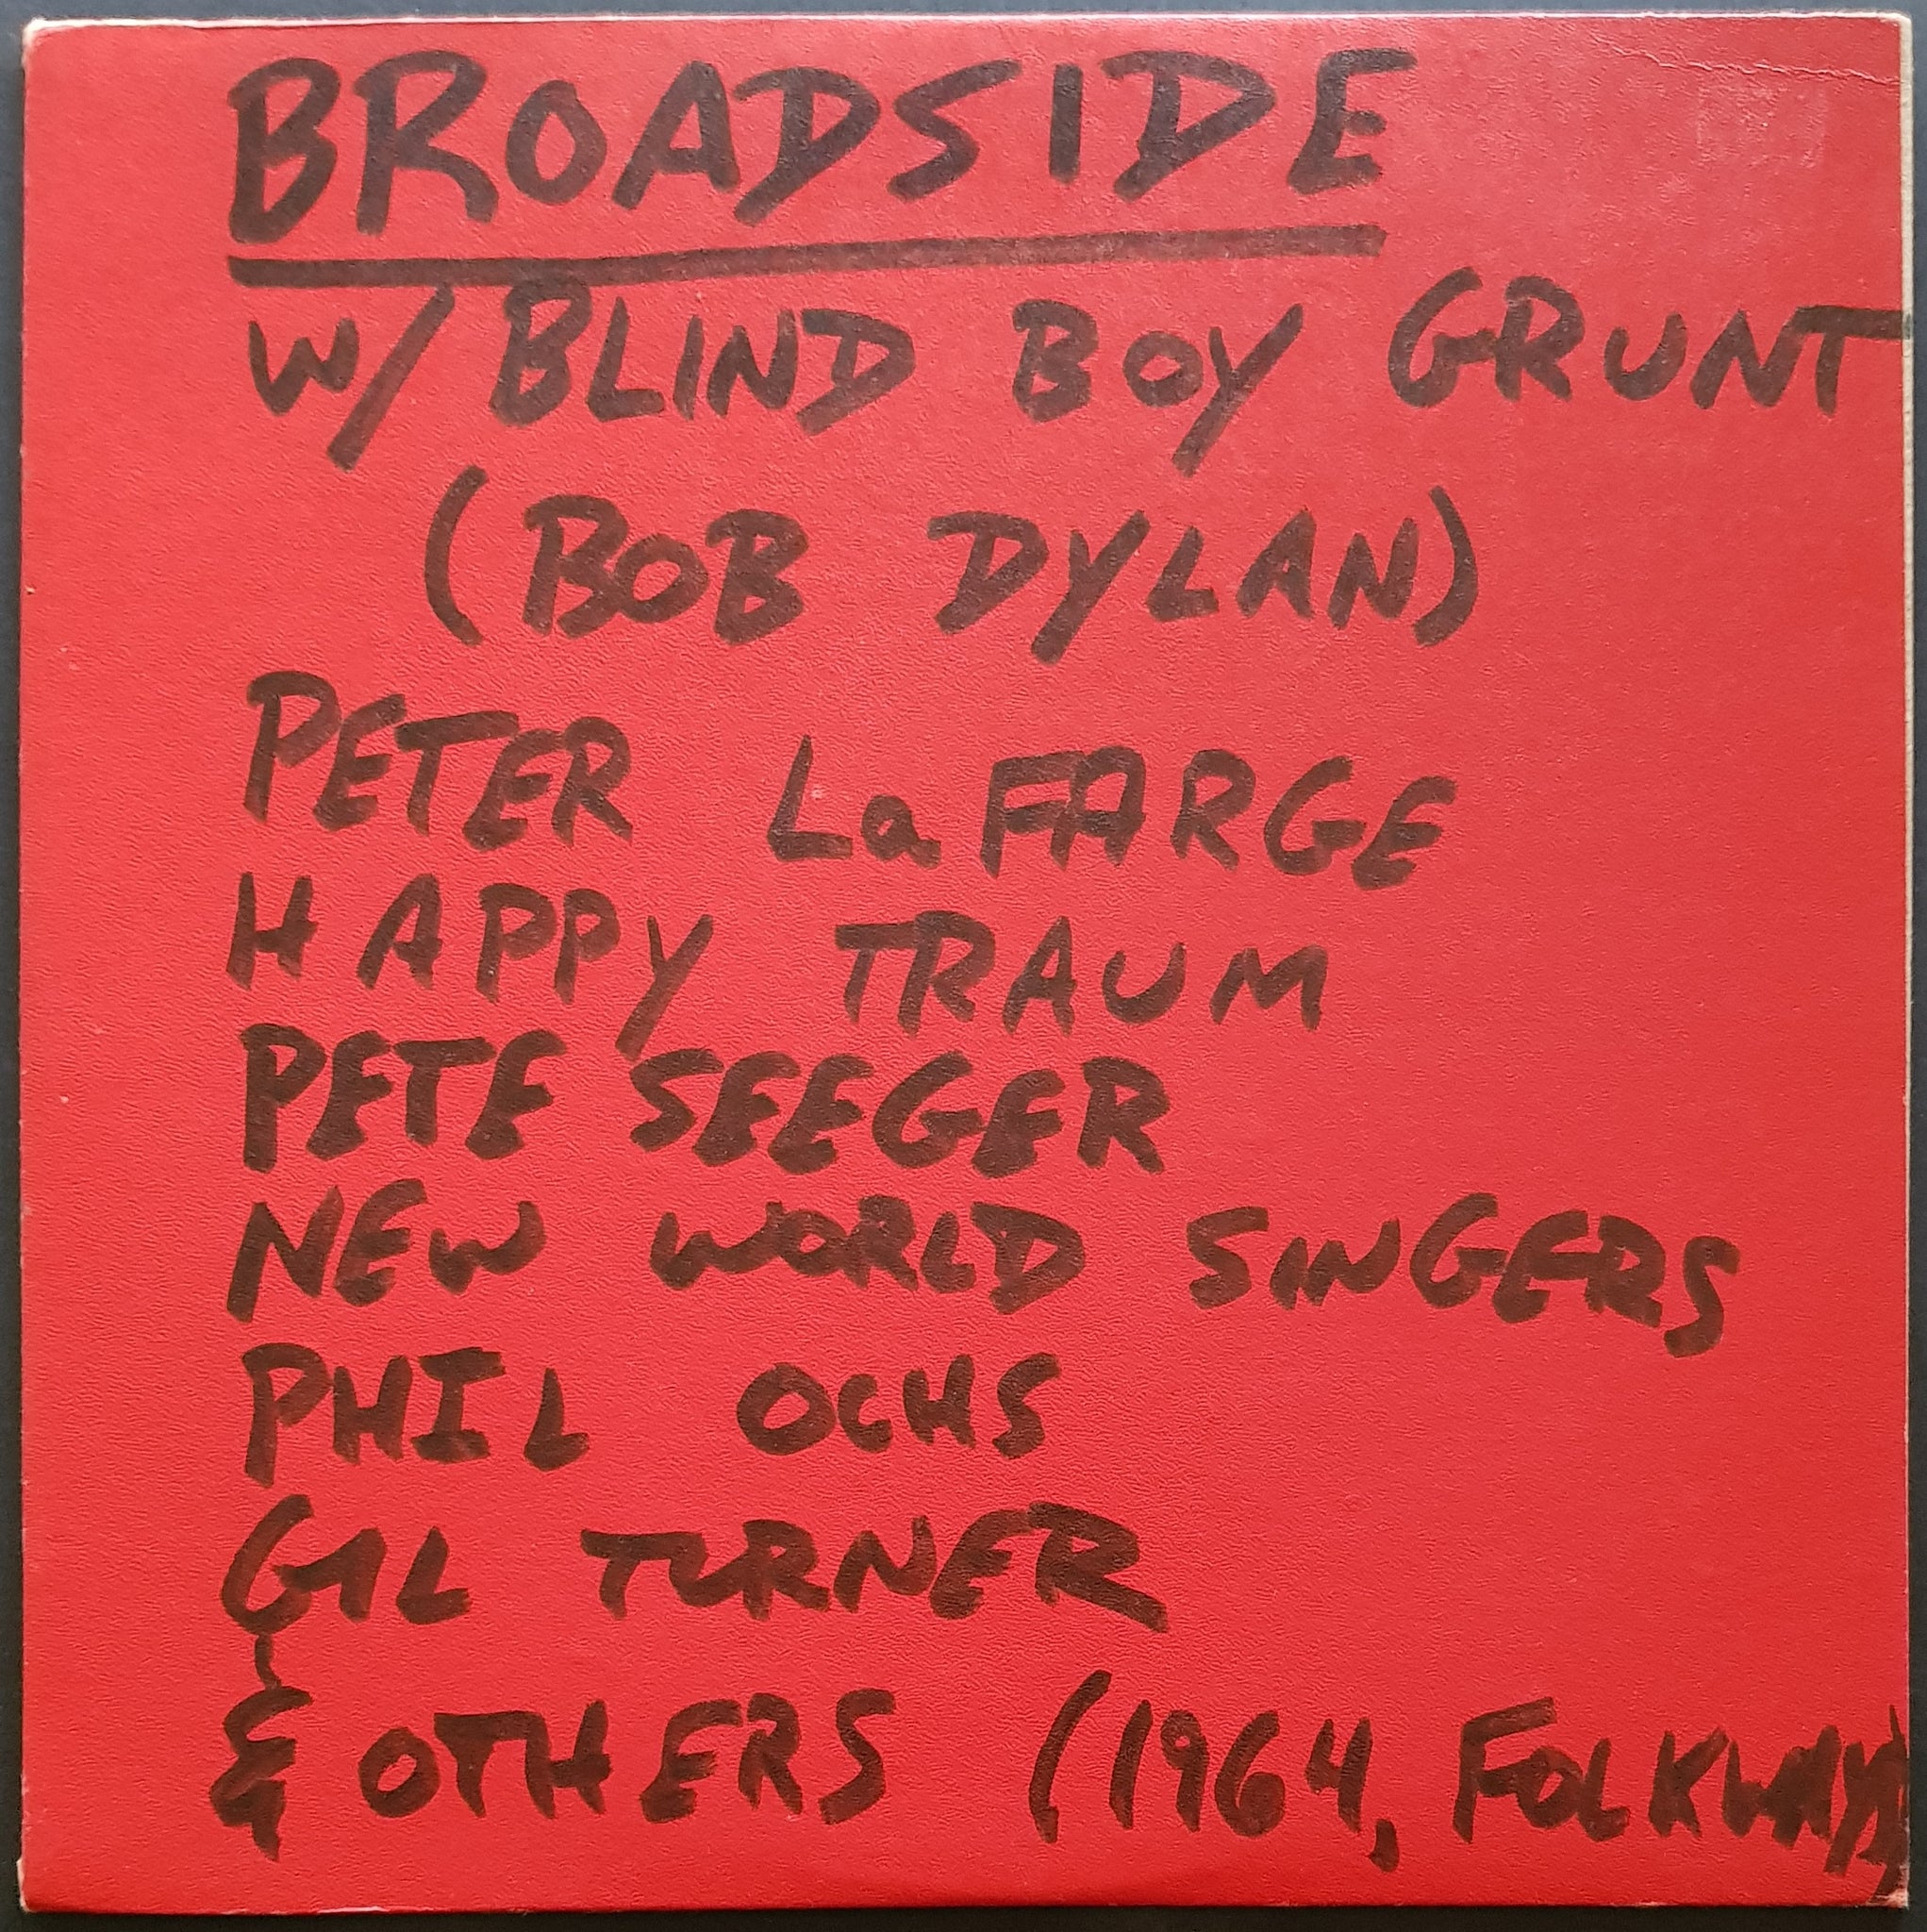 BROADSIDE
W/ BLIND BOY GRUNT
(BOB DYLAN)
PETER La FARGE
HAPPY TRAUM
PETE SEEGER
NEW WORLD SINGERS
PHIL OCHS
GIL TURNER
& OTHERS (1964, FOLKWAYS)